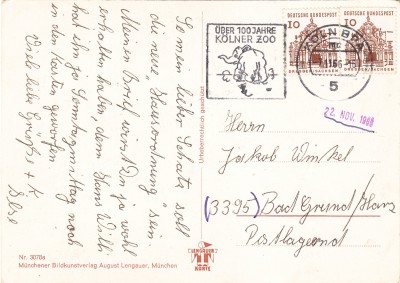 So mein lieber Schatz soll
die neue "Hausordnung" sein.
Meinen Brief wirst Du ja wohl
erhalten haben, denn Hans Willi
hat ihn ja Sonntagmittag noch
in den Kasten geworfen.
Viele liebe Grüße + K
Else
Nr. 3078a
Münchener Bildkunstverlag August Lengauer, München
Urheberrechtlich geschützt
LENGAUER
KARTE
ÜBER 100 JAHRE
KÖLNER ZOO
KÖLN
5
DEUTSCHE BUNDESPOST
10
DRESDEN-SACHSEN
DEUTSCHE BUNDESPOST
10
DRESDEN-SACHSEN
22. NOV. 1966
Herrn
Jakob Winkel
(3395) Bad Grund/Harz
Postlagernd